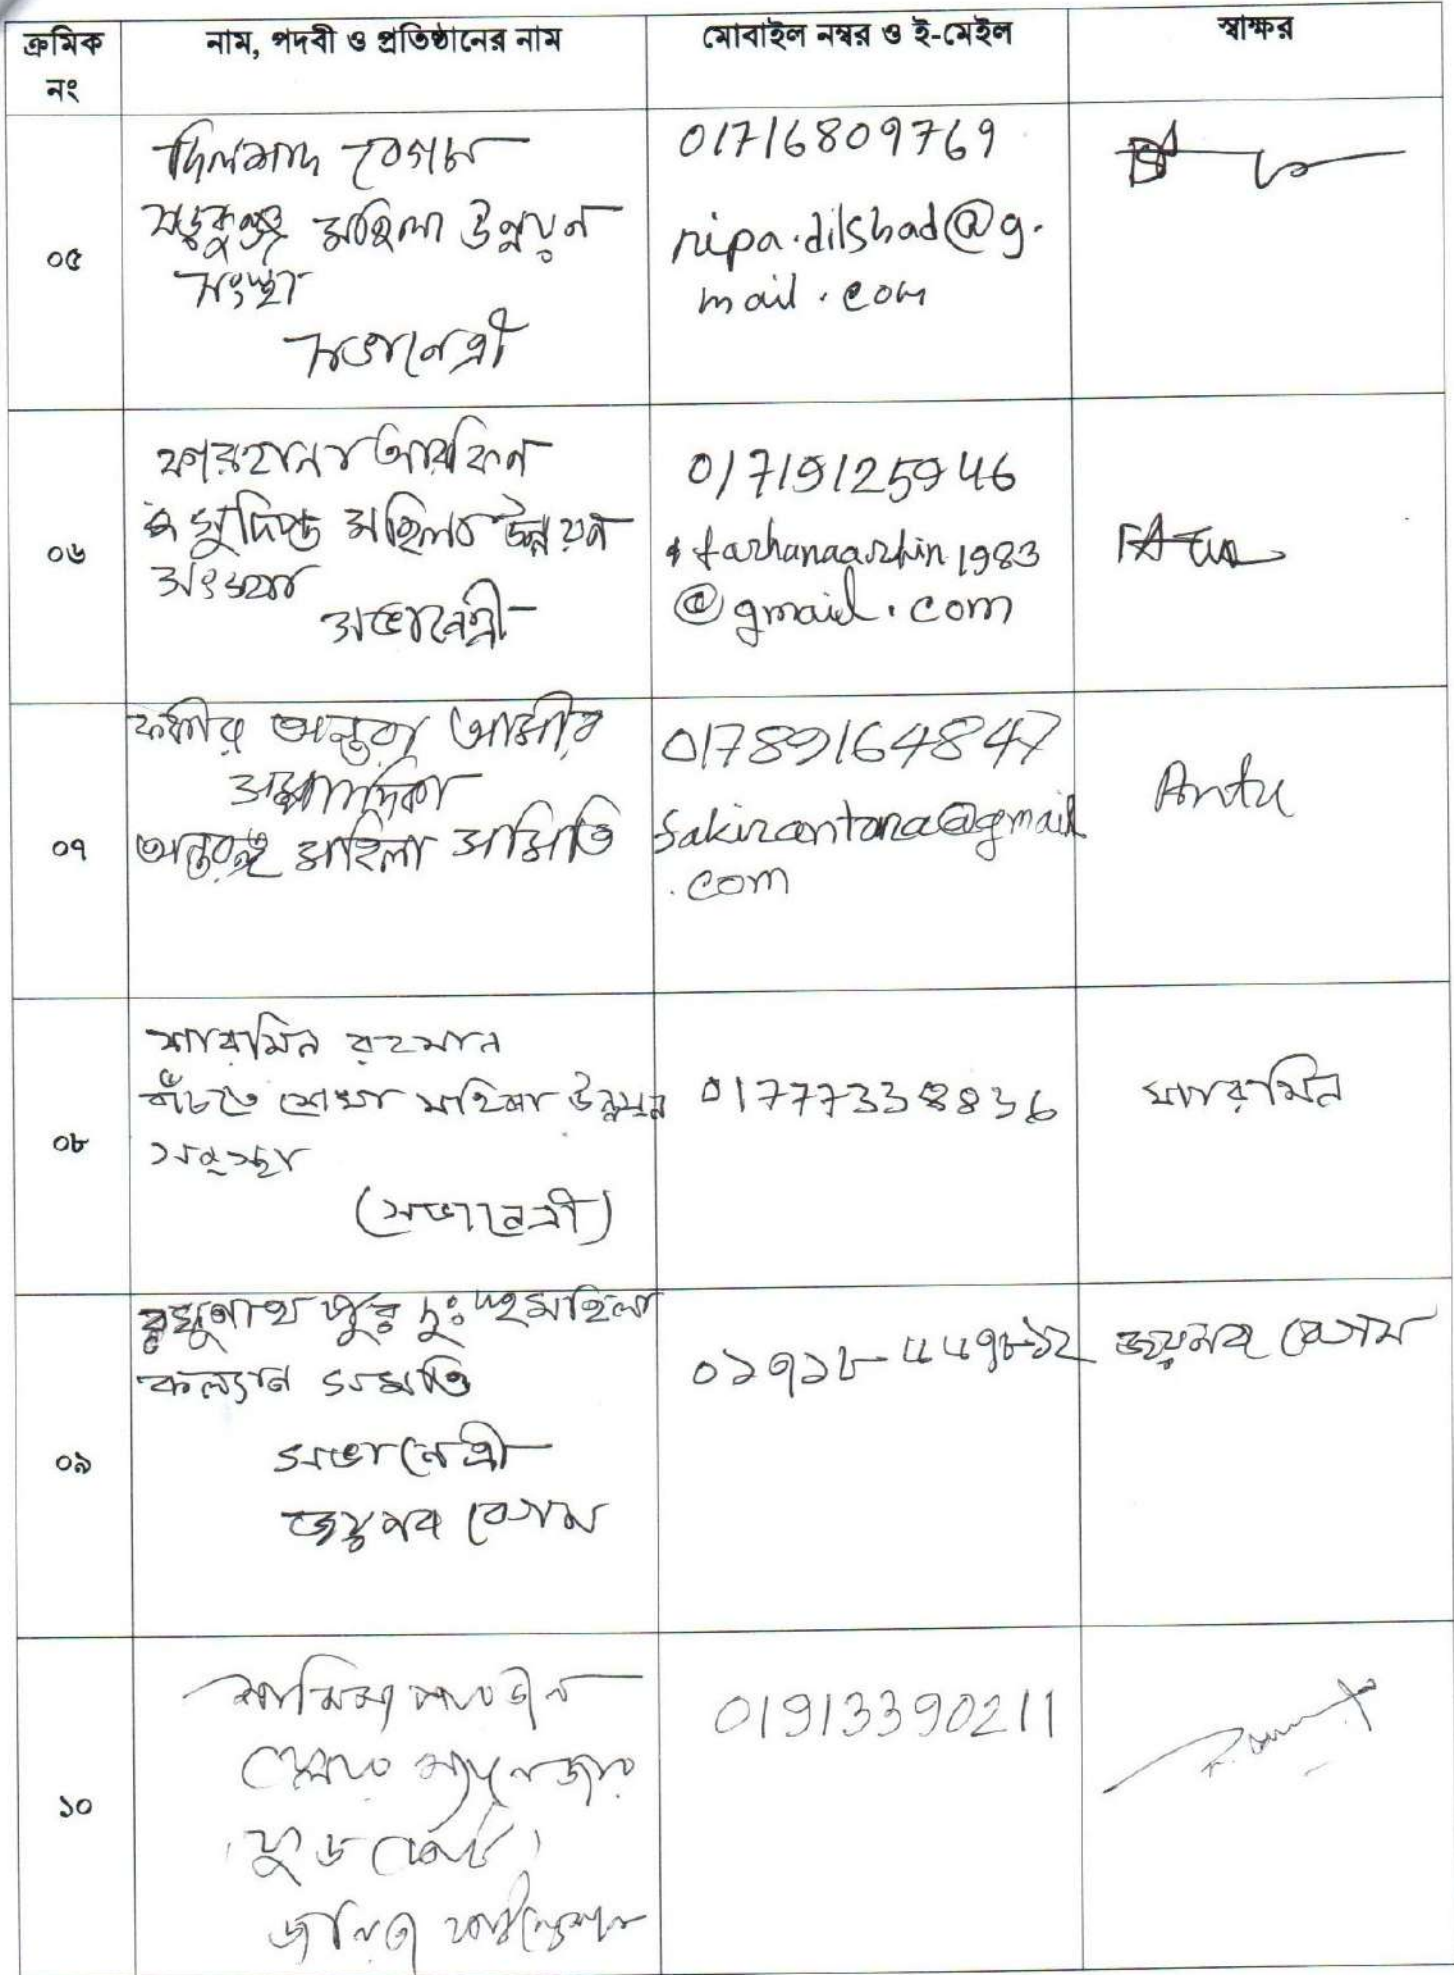 ক্রমিক নং
নাম, পদবী ও প্রতিষ্ঠানের নাম
মোবাইল নম্বর ও ই-মেইল
স্বাক্ষর
০৫
দিলশাদ বেগম
মহিলা উন্নয়ন
সংস্থা
সভানেত্রী
01716809769
nipa.dilshad@g.
mail.com
০৬
ফারহানা আরফিন
মহিলা উন্নয়ন
সংস্থা
সভানেত্রী
01719125946
farhanaarfin1983
@gmail.com
০৭
ফকীর অন্তরা আমীর
সম্পাদিকা
অন্তরঙ্গ মহিলা সমিতি
01789164847
fakirantara@gmail
.com
Antu
০৮
শারমিন রহমান
বাঁচতে শেখা মহিলা উন্নয়ন
সংস্থা
(সভানেত্রী)
01777338836
শারমিন
০৯
রঘুনাথ পুর দুঃস্থ মহিলা
কল্যান সমিতি
সভানেত্রী
জয়নব বেগম
জয়নব বেগম
১০
ম্যানেজার
ফুড কোর্ট
01913390211